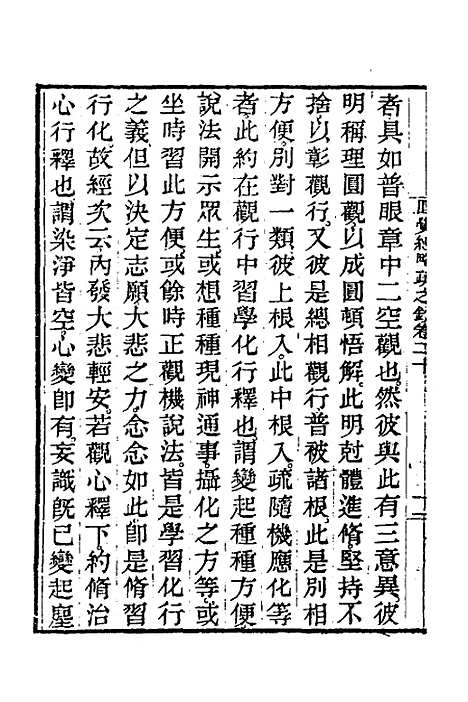 圓覺經略疏之鈔卷二十
者具如普眼章中二空觀也然彼與此有三意異彼
明稱理圓觀以成圓頓悟解此明尅體進脩堅持不
捨以彰觀行又彼是總相觀行普被諸根此是別相
方便別對一類彼上根入此中根入疏隨機應化等
者此約在觀行中習學化行釋也謂變起種種方便
說法開示眾生或想種種現神通事攝化之方等或
坐時習此方便或餘時正觀機說法皆是學習化行
之義但以決定志願大悲之力念念如此卽是脩習
行化故經次云內發大悲輕安若觀心釋下約脩治
心行釋也謂染淨皆空心變卽有妄識旣已變起塵